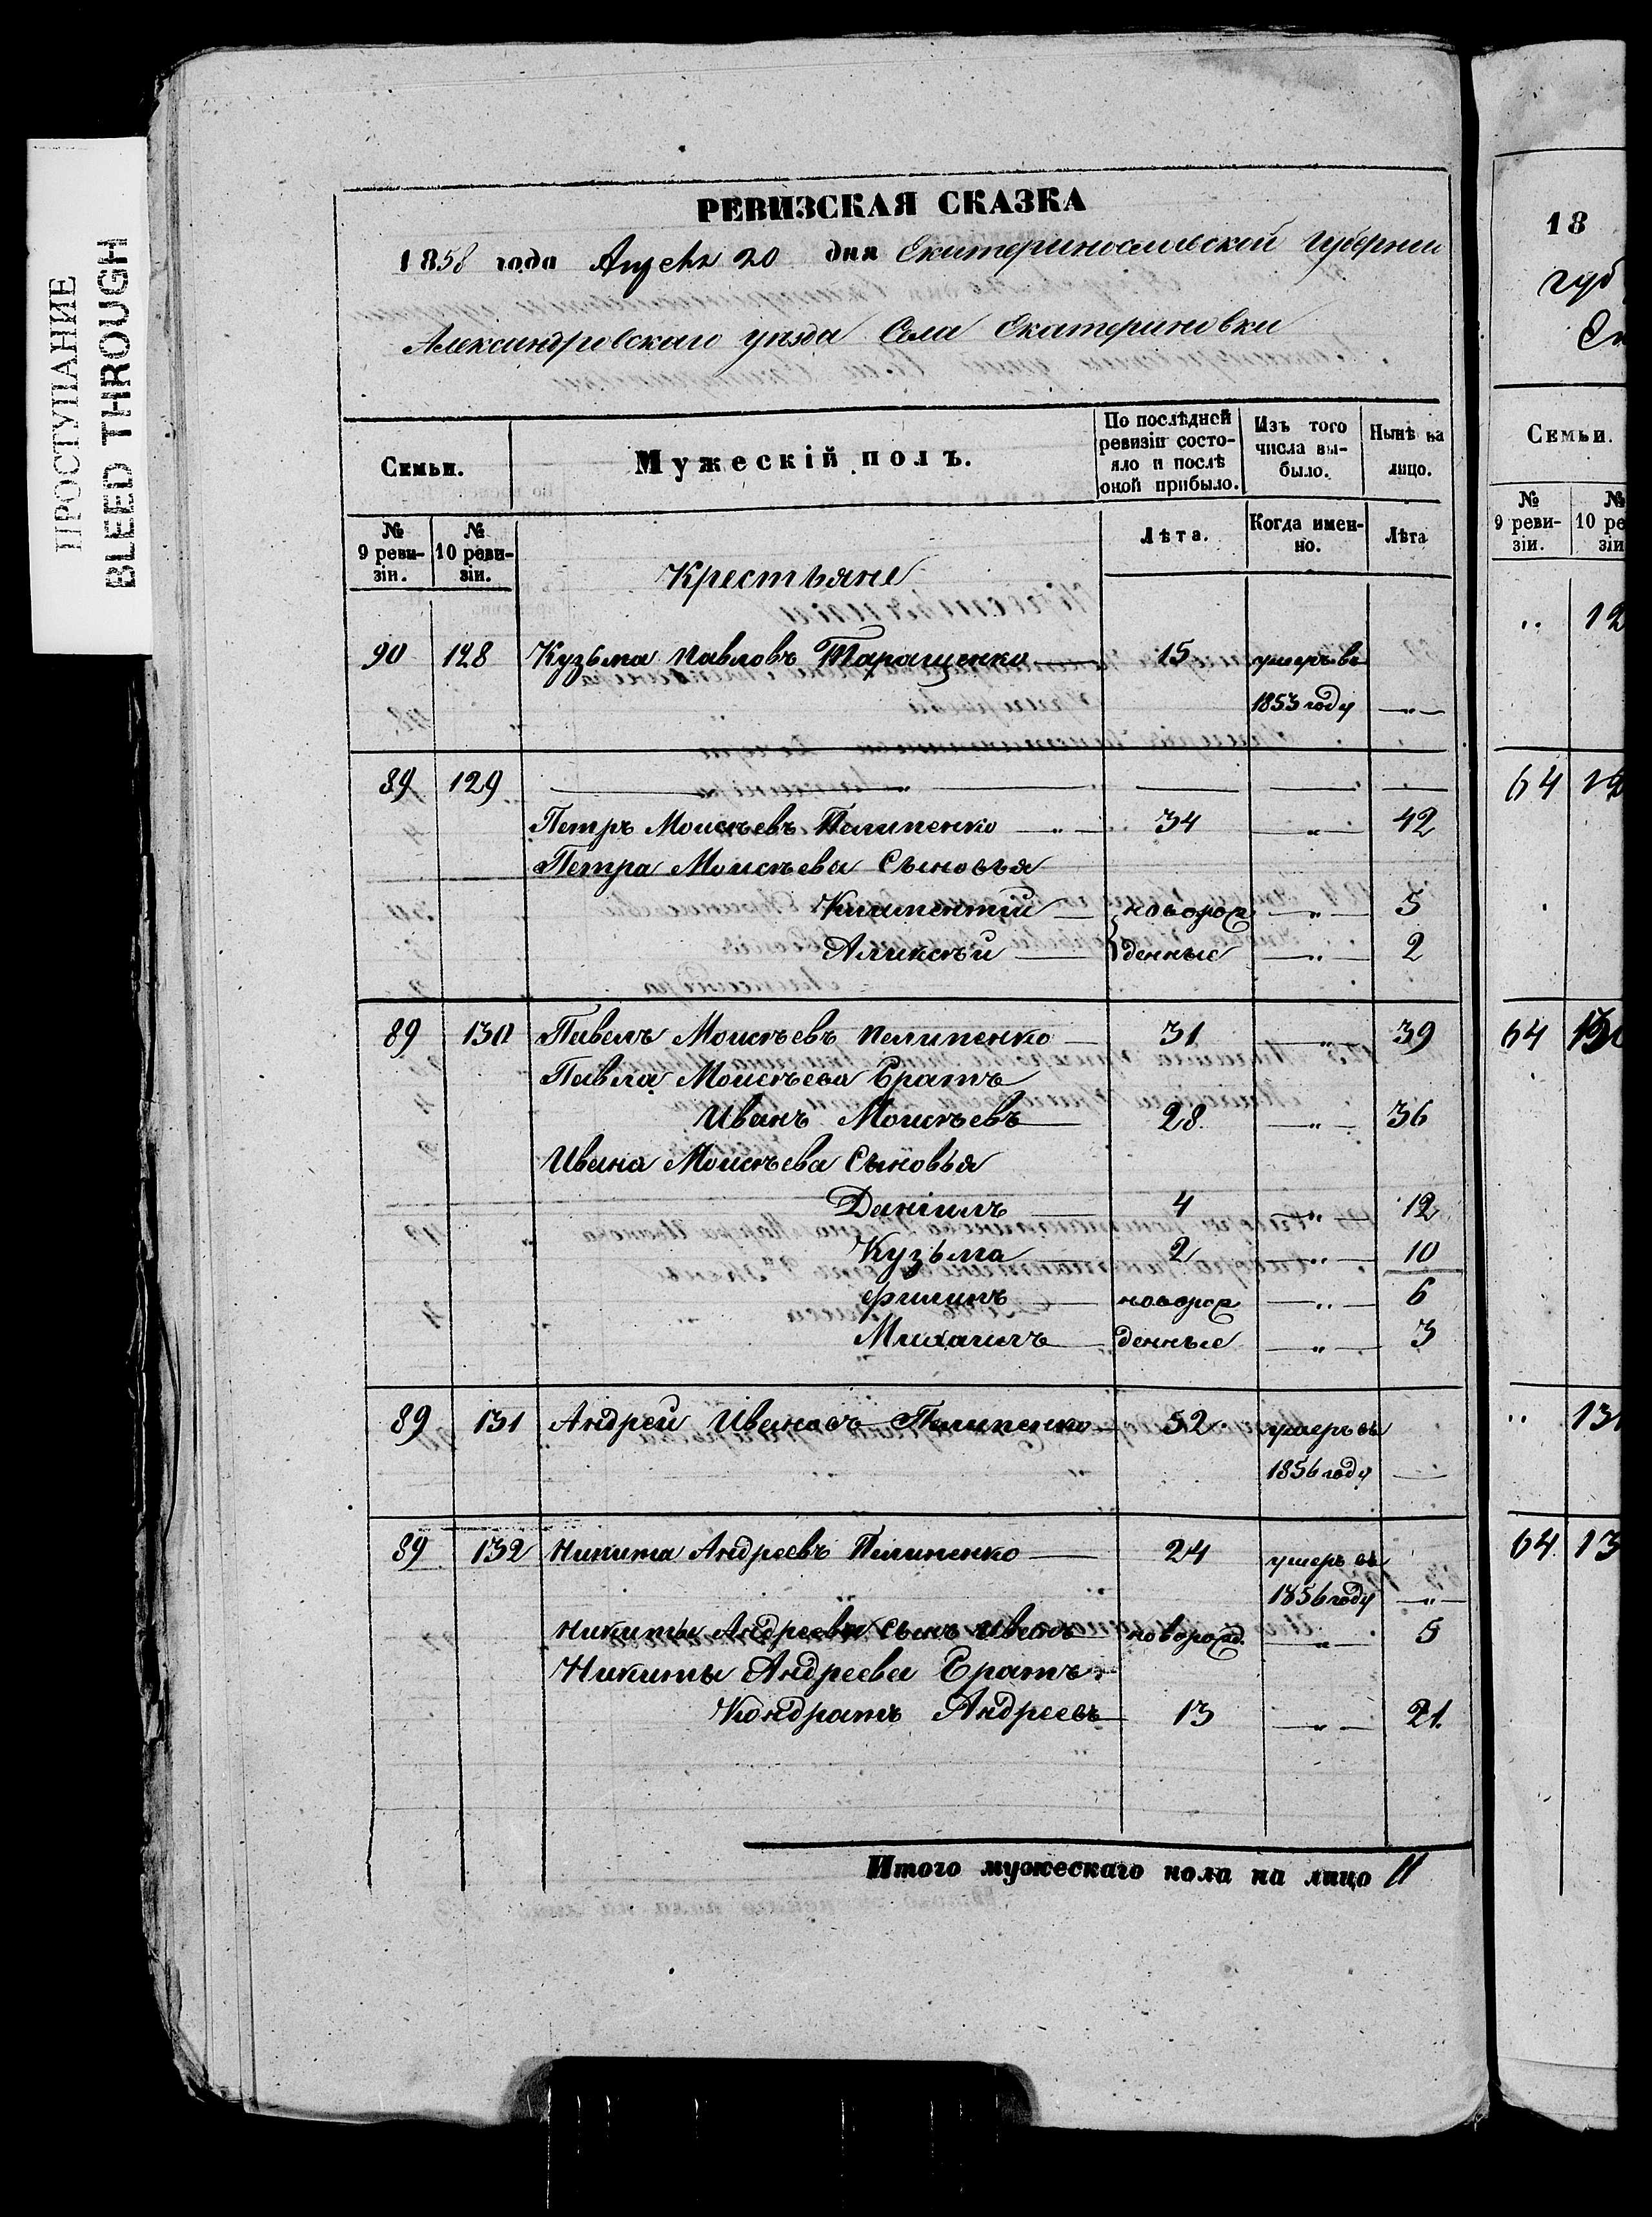 ПРОСТУПАНИЕ
BLEED THROUGH
РЕВИЗСКАЯ СКАЗКА
1858 года Апреля 20 дня Екатеринославской губернии
Александровскаго уезда Села Екатериновки
Семьи. Мужескій полъ. По послѣдней ревизіи состояло и послѣ оной прибыло. Изъ того числа выбыло. Нынѣ на лицо.
№ 9 ревизіи. № 10 ревизіи. Лѣта. Когда именно. Лѣта
Крестьяне
90 128 Кузьма Павловъ Таращенко 15 умеръ въ
1853 году „
89 129 „
Петръ Моисѣевъ Пилипенко „ 34 „ 42
Петра Моисѣева Сыновья
Климентій новорож „ 5
Алексѣй денные „ 2
89 130 Павелъ Моисѣевъ Пилипенко 31 „ 39
Павла Моисѣева братъ
Иванъ Моисѣевъ 28 „ 36
Ивана Моисѣева Сыновья
Даніилъ 4 „ 12
Кузьма 2 „ 10
Филипъ новорож „ 6
Михаилъ денные „ 3
89 131 Андрей Ивановъ Пилипенко 52 умеръ въ
1856 году
89 132 Никита Андреевъ Пилипенко 24 умеръ въ
1856 году „
Никиты Андреева Сынъ Иванъ новорожд. „ 5
Никиты Андреева братъ
Кондратъ Андреевъ 13 „ 21.
Итого мужескаго пола на лицо 11
18
губ
Семьи.
№ 9 ревизіи. № 10 ре зіи
„ 12
64 12
64 130
„ 131
64 13